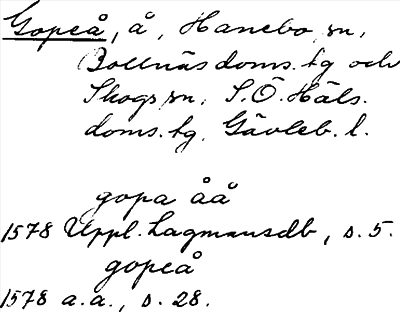 Gopeå, å, Hanebo sn,
Bollnäs doms. tg och
Skogs sn, S. Ö. Häls.
doms. tg, Gävleb. l.
gopa åå
1578 Uppl. Lagmansdb, s. 5.
gopeå
1578 a.a., s. 28.